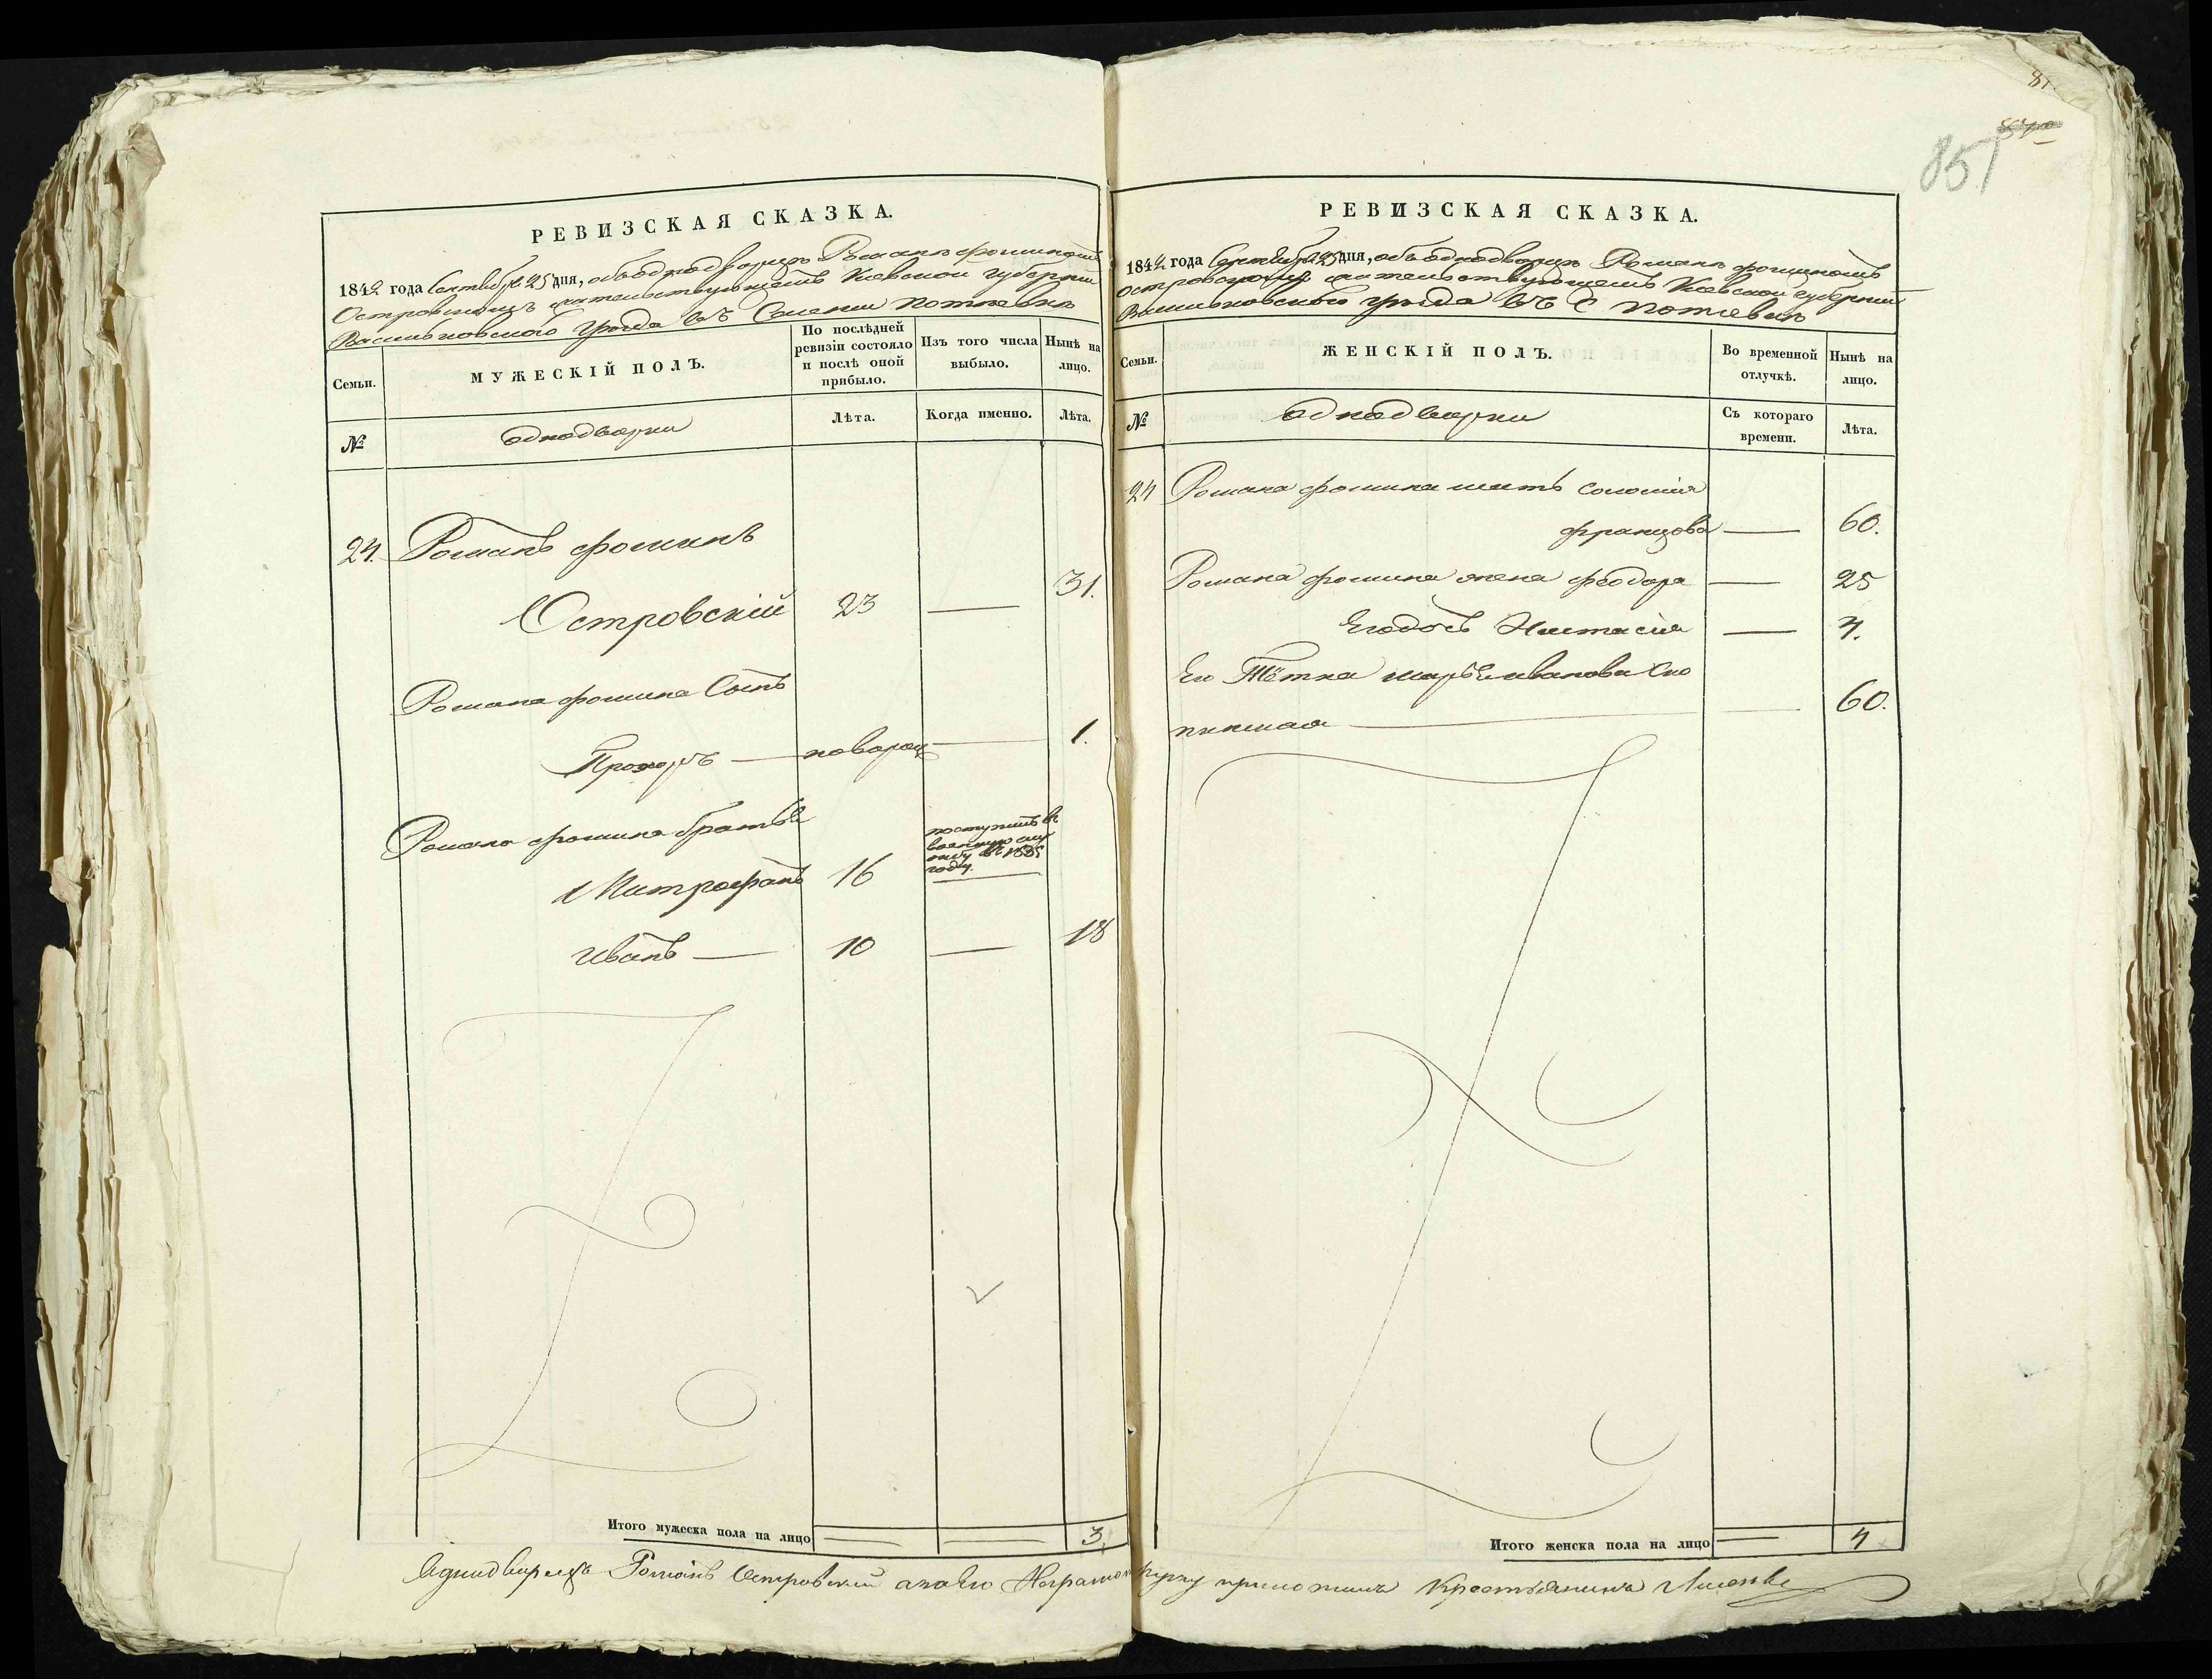 81.
851
РЕВИЗСКАЯ СКАЗКА.
1842 года Сентября 25 дня, объ однодворцѣ Романѣ Фоминомъ
Островскомъ жительствующемъ Киевской губерніи
Васильковскаго уѣзда въ Селеніи Потиевкѣ
Семьи.
МУЖЕСКІЙ ПОЛЪ.
По послѣдней ревизіи состояло и послѣ оной прибыло.
Изъ того числа выбыло.
Нынѣ на лицо.
№
однодворки
Лѣта.
Когда именно.
Лѣта.
24. Романъ Фоминъ
Островскій 23 — 31.
Романа Фомина Сынъ
Прохоръ — новорож — 1.
Романа Фомина братья
Митрофанъ 16 поступилъ въ
военную слу
жбу въ 1835
году.
Иванъ — 10 — 18
Итого мужеска пола на лицо 3.
РЕВИЗСКАЯ СКАЗКА.
1842 года Сентября 25 дня, объ однодворцѣ Романѣ Фоминомъ
Островскому жительствующемъ Киевской губерніи
Васильковского уѣзда въ С Потиевкѣ
Семьи.
ЖЕНСКІЙ ПОЛЪ.
Во временной отлучкѣ.
Нынѣ на лицо.
№
однодворки
Съ котораго времени.
Лѣта.
24 Романа Фомина мать Соломия
Францова — 60.
Романа Фомина жена Феодора — 25
Его дочь Настасия — 4.
Его Тётка Марья Иванова
60.
Итого женска пола на лицо 4
Однодворецъ Романъ Островский а по его неграмот руку приложилъ Крестьянинъ